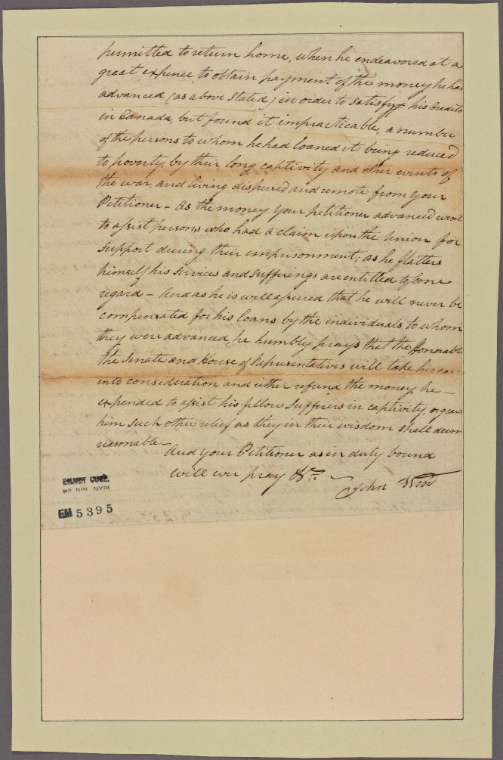 permitted to return home, when he endeavored at a
great expence to obtain payment of the money he had
advanced (as above stated) in order to satisfy his Creditors
in Canada, but found it impracticable, a number
of the persons to whom he had loaned it being reduced
to poverty, by their long captivity and other events of
the war, and living dispersed and remote from your
Petitioner – As the money your petitioner advanced went
to assist persons who had a claim upon the Union for
Support during their imprisonment; as he flatters
himself his services and sufferings are entitled to some
regard – And as he is well assured that he will never be
compensated for his loans by the individuals to whom
they were advanced, he humbly prays that the Honorable
the Senate and House of Representatives will take his case
into consideration and either refund the money he
expended to assist his fellow Suffers in captivity, or give
him such other relief as they in their wisdom shall deem
reasonable –
And your Petitioner as in duty bound
will ever pray &c.
John Wood
EMMET COLL.
EM 5395